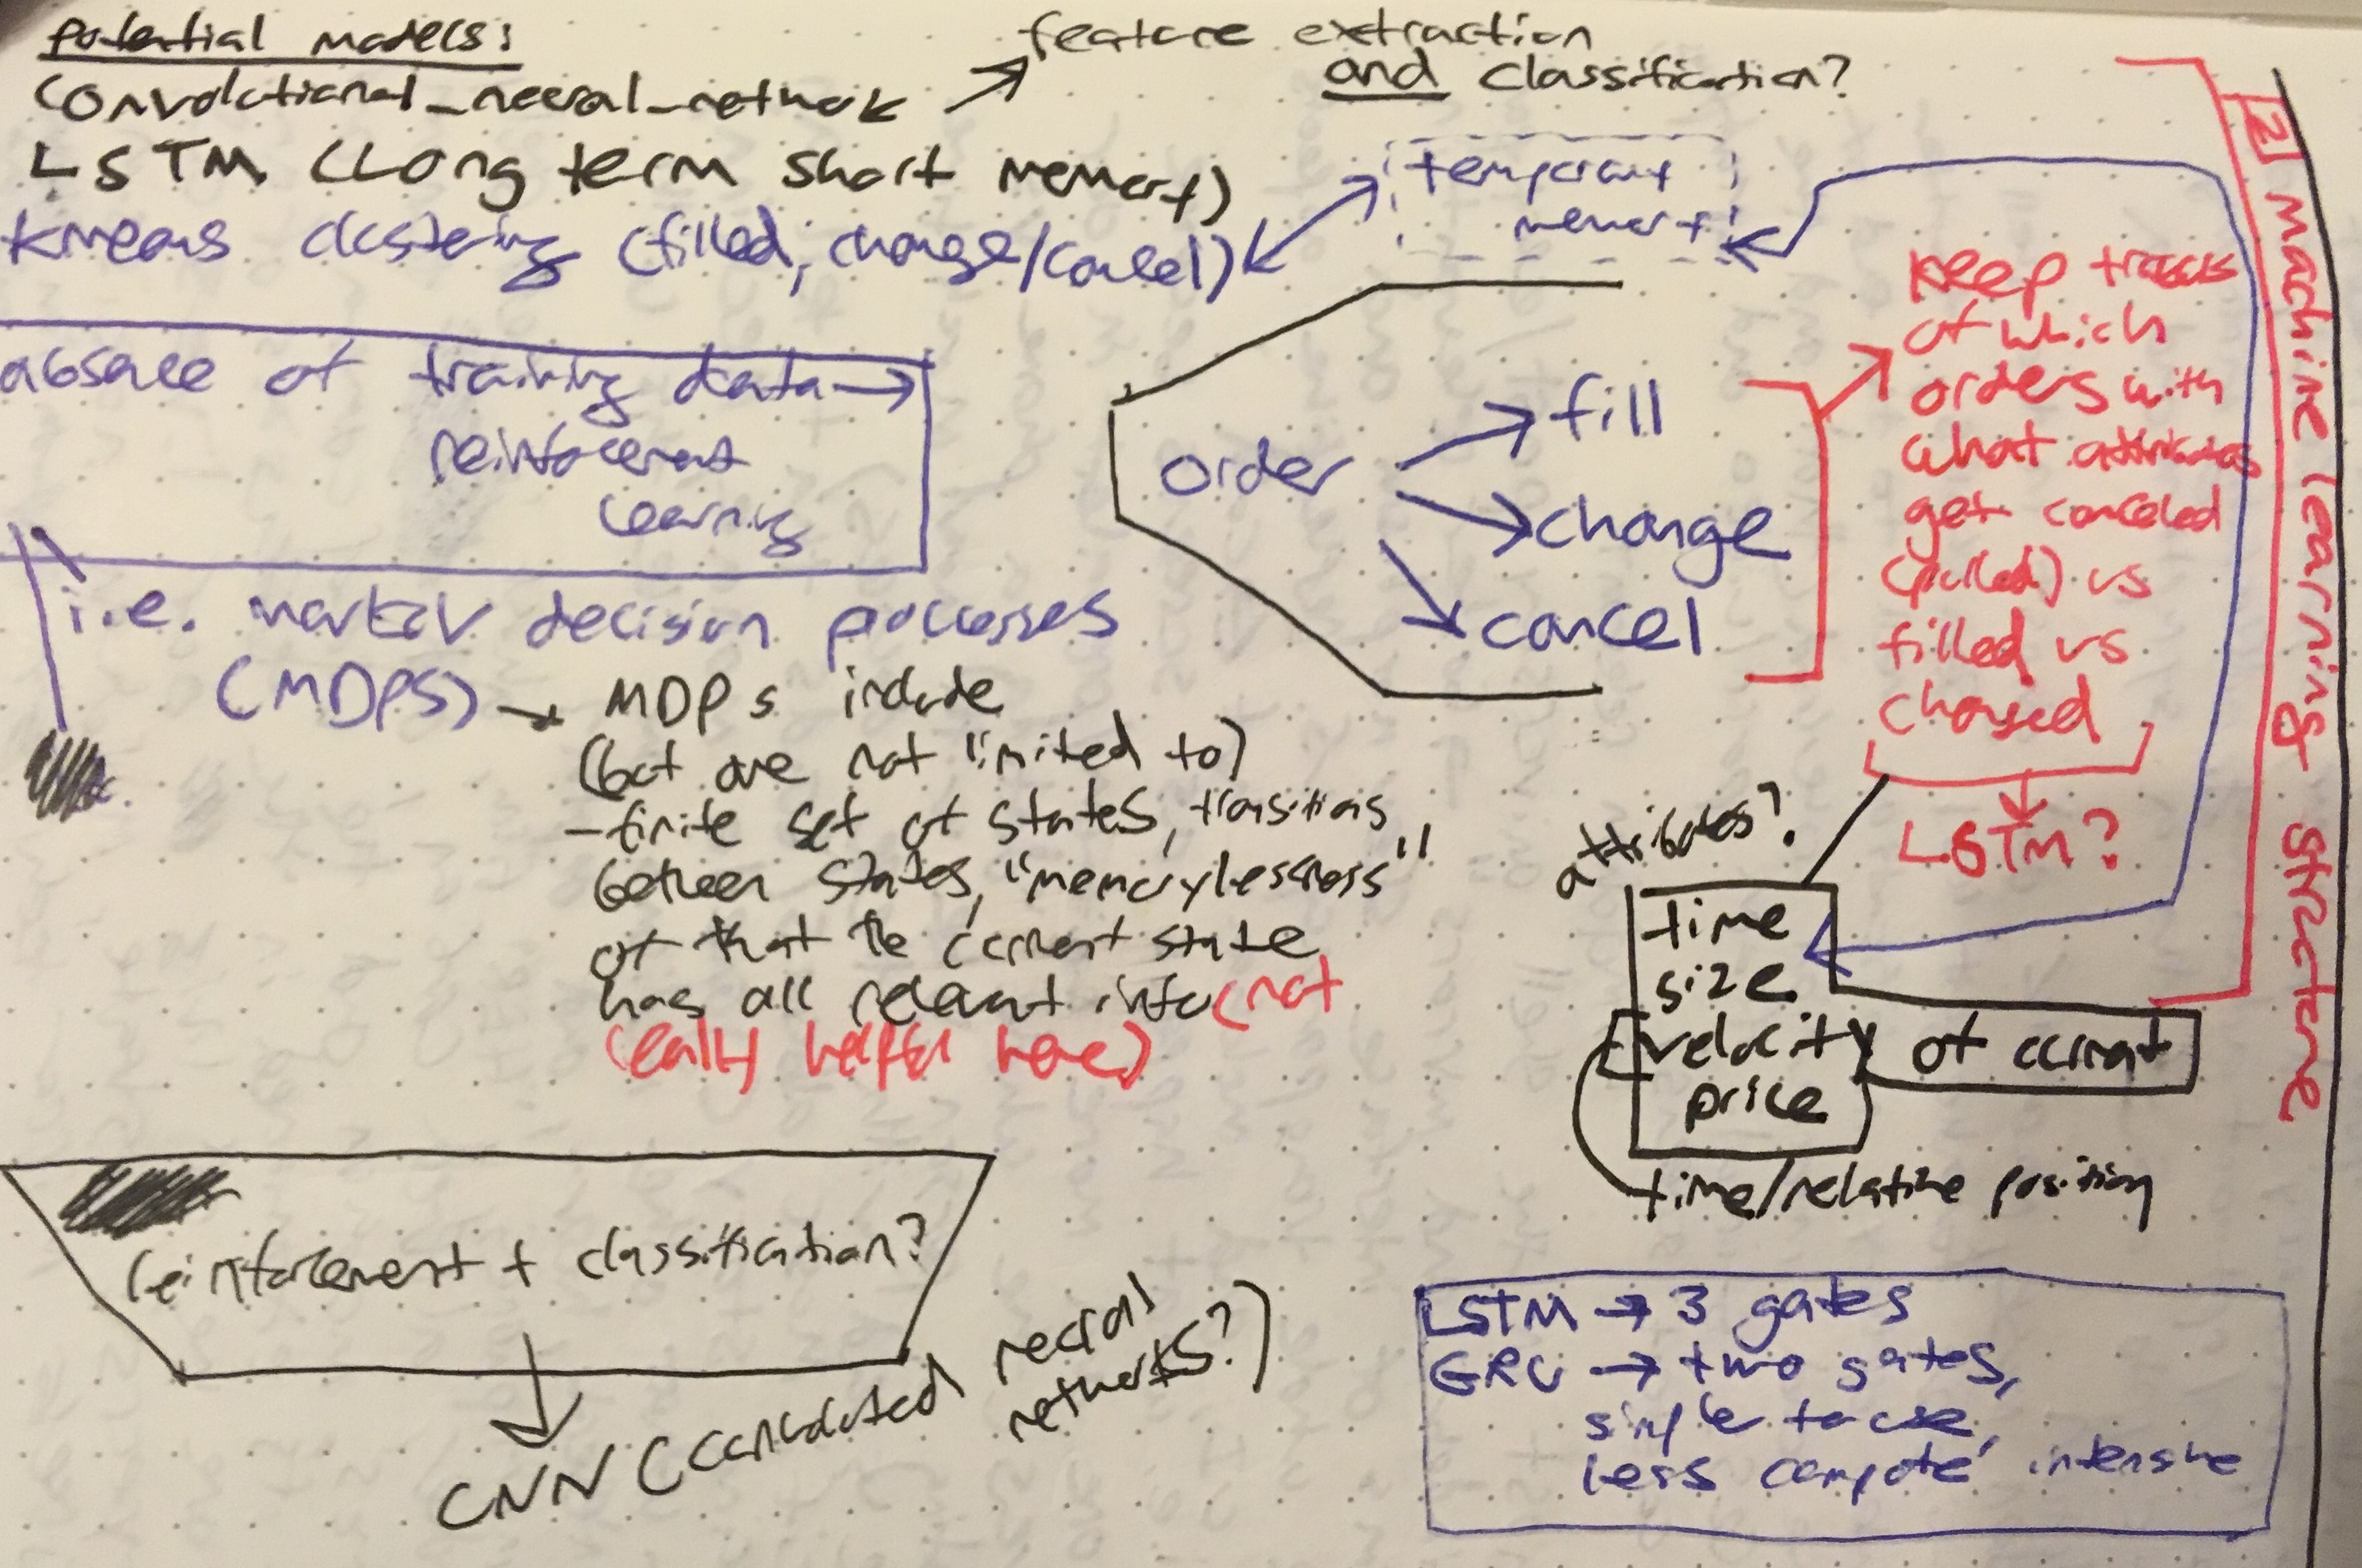 potential models:
convolutional_neural_network
feature extraction
and classification?
LSTM (Long term short memory)
kmeans clustering (filled, change/cancel)
temporary
memory
absence of training data →
reinforcement
learning
i.e. markov decision processes
(MDPS) → MDPs include
(but are not limited to)
- finite set of states, transitions
between states, "memorylessness"
of that the current state
has all relevant info (not
really helpful here)
order
fill
change
cancel
keep track
of which
orders with
what attributes
get canceled
(pulled) vs
filled vs
changed
LSTM?
2 machine learning structure
attributes?
time
size
velocity of current
price
time/relative position
reinforcement + classification?
CNN (convoluted neural
networks?)
LSTM → 3 gates
GRU → two gates,
simple to use,
less compute intensive